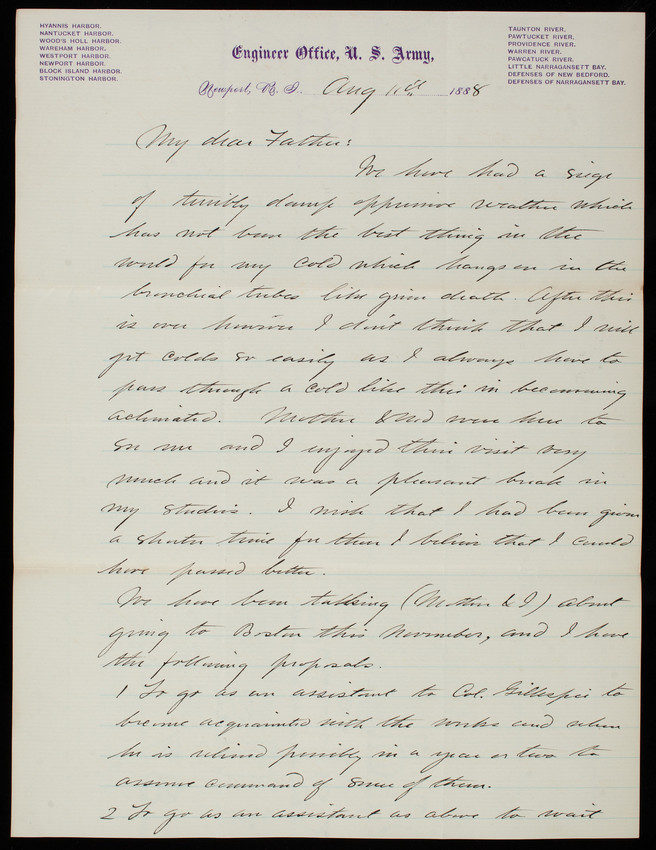 HYANNIS HARBOR.
NANTUCKET HARBOR.
WOOD'S HOLL HARBOR.
WAREHAM HARBOR.
WESTPORT HARBOR.
NEWPORT HARBOR.
BLOCK ISLAND HARBOR.
STONINGTON HARBOR.
Engineer Office, U. S. Army,
Newport, R. I., Aug 11th 1888
TAUNTON RIVER.
PAWTUCKET RIVER.
PROVIDENCE RIVER.
WARREN RIVER.
PAWCATUCK RIVER.
LITTLE NARRAGANSETT BAY.
DEFENSES OF NEW BEDFORD.
DEFENSES OF NARRAGANSETT BAY.
My dear Father:
We have had a siege
of terribly damp oppressive weather which
has not been the best thing in the
world for my cold which hangs on in the
bronchial tubes like grim death. After this
is over however I don't think that I will
get colds so easily as I always have to
pass through a cold like this in becomming
aclimated. Mother & Ned were here to
see me and I enjoyed their visit very
much and it was a pleasant break in
my studies. I wish that I had been given
a shorter time for then I believe that I could
have passed better.
We have been talking (Mother & I) about
going to Boston this November, and I have
the following proposals.
1 To go as an assistant to Col. Gillespie to
become acquainted with the works and when
he is relieved possibly in a year or two to
assume command of some of them.
2 To go as an assistant as above to wait